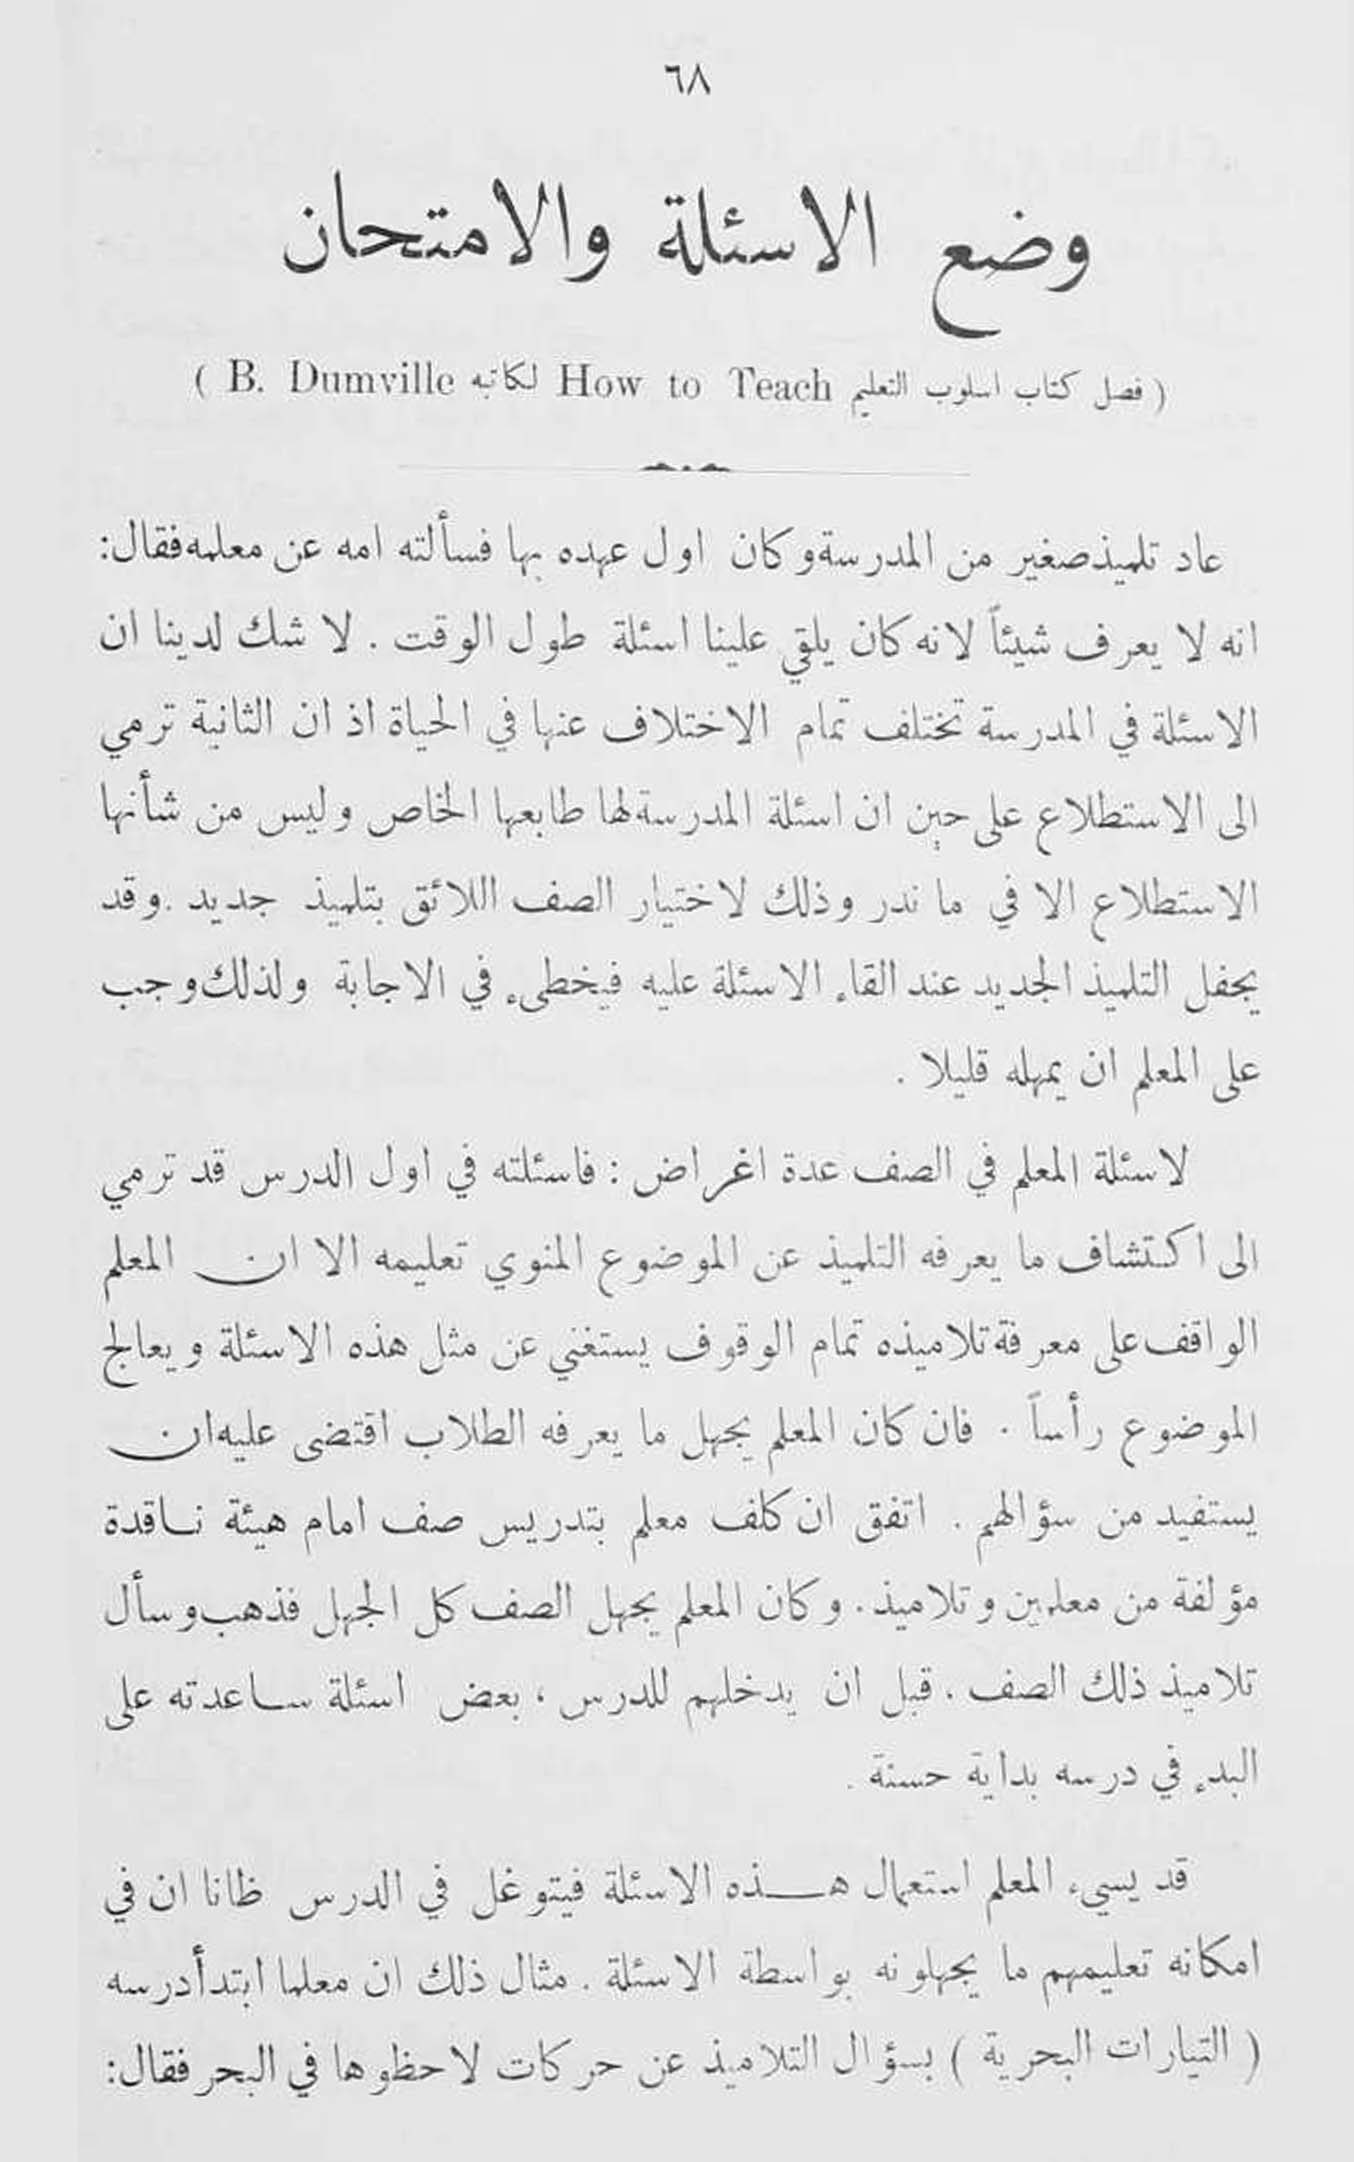 ٦٨
وضع الاسئلة والامتحان
( فصل كتاب اسلوب التعليم How to Teach لكاتبه B. Dumville )
عاد تلميذ صغير من المدرسة وكان اول عهده بها فسألته امه عن معلمه فقال:
انه لا يعرف شيئاً لانه كان يلقي علينا اسئلة طول الوقت . لا شك لدينا ان
الاسئلة في المدرسة تختلف تمام الاختلاف عنها في الحياة اذ ان الثانية ترمي
الى الاستطلاع على حين ان اسئلة المدرسة لها طابعها الخاص وليس من شأنها
الاستطلاع الا في ما ندر وذلك لاختيار الصف اللائق بتلميذ جديد . وقد
يجفل التلميذ الجديد عند القاء الاسئلة عليه فيخطىء في الاجابة ولذلك وجب
على المعلم ان يمهله قليلا .
لاسئلة المعلم في الصف عدة اغراض : فاسئلته في اول الدرس قد ترمي
الى اكتشاف ما يعرفه التلميذ عن الموضوع المنوي تعليمه الا ان المعلم
الواقف على معرفة تلاميذه تمام الوقوف يستغني عن مثل هذه الاسئلة ويعالج
الموضوع رأساً . فان كان المعلم يجهل ما يعرفه الطلاب اقتضى عليه ان
يستفيد من سؤالهم . اتفق ان كلف معلم بتدريس صف امام هيئة ناقدة
مؤلفة من معلمين وتلاميذ . وكان المعلم يجهل الصف كل الجهل فذهب وسأل
تلاميذ ذلك الصف . قبل ان يدخلهم للدرس ، بعض اسئلة ساعدته على
البدء في درسه بداية حسنة .
قد يسيء المعلم استعمال هذه الاسئلة فيتوغل في الدرس ظانا ان في
امكانه تعليمهم ما يجهلونه بواسطة الاسئلة . مثال ذلك ان معلما ابتدأ درسه
( التيارات البحرية ) بسؤال التلاميذ عن حركات لاحظوها في البحر فقال: